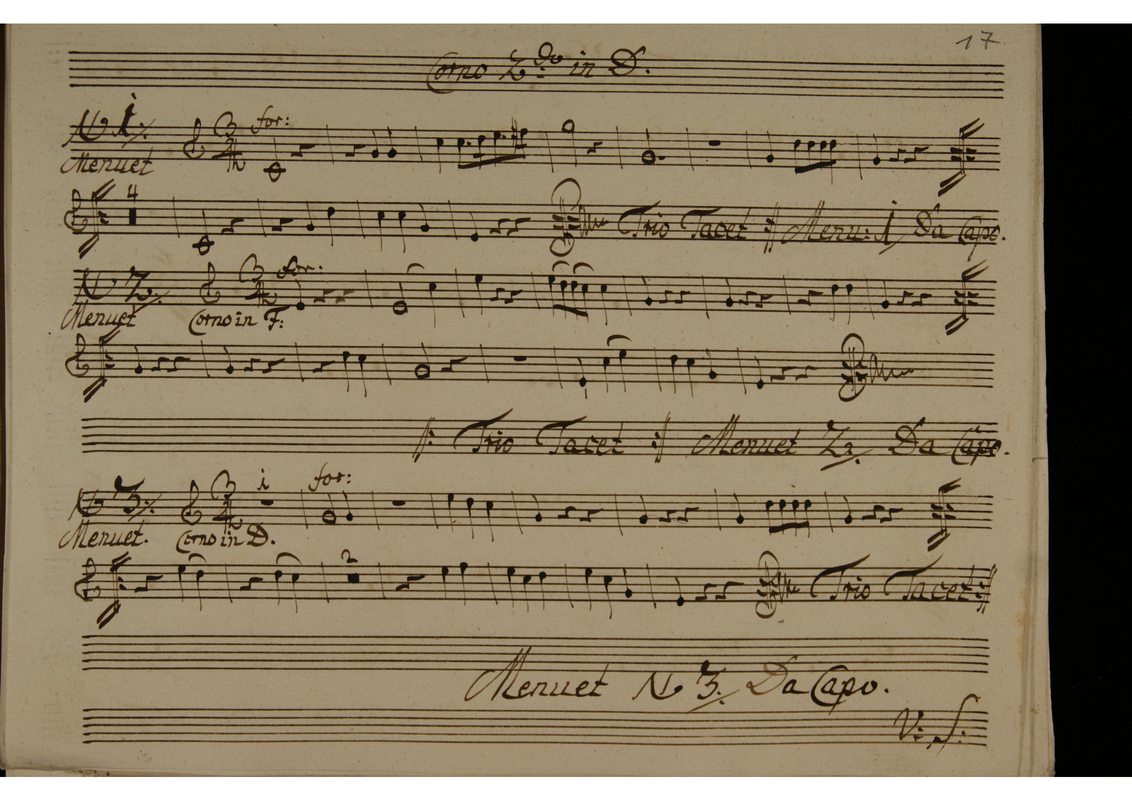 17
Corno 2do in D.
N 1.
for:
Menuet
4
Trio Tacet Menu: 1 Da Capo.
N 2.
for:
Menuet Corno in F:
Trio Tacet Menuet 2. Da Capo.
3.
1
for:
Menuet. Corno in D.
2
Trio Tacet
Menuet N 3. Da Capo.
V: S: